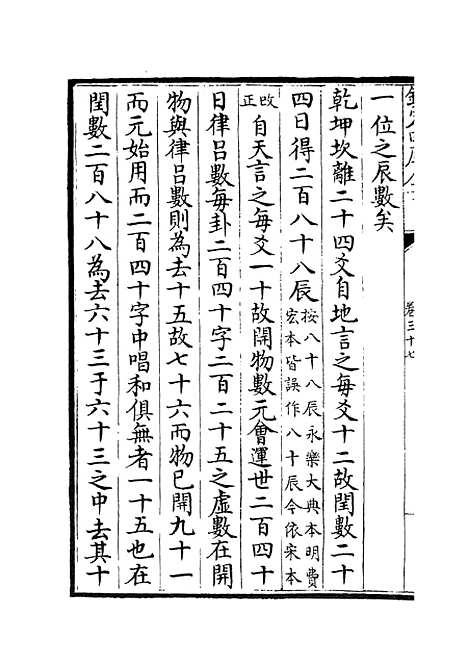 卷三十七
一位之辰數矣
乾坤坎離二十四爻自地言之每爻十二故閏數二十
四日得二百八十八辰按八十八辰永樂大典本明費宏本皆誤作八十辰今依宋本
改正自天言之每爻一十故開物數元會運世二百四十
日律呂數每卦二百四十字二百二十五之虛數在開
物與律呂數則為去十五故七十六而物已開九十一
而元始用而二百四十字中唱和俱無者一十五也在
閏數二百八十八為去六十三于六十三之中去其十